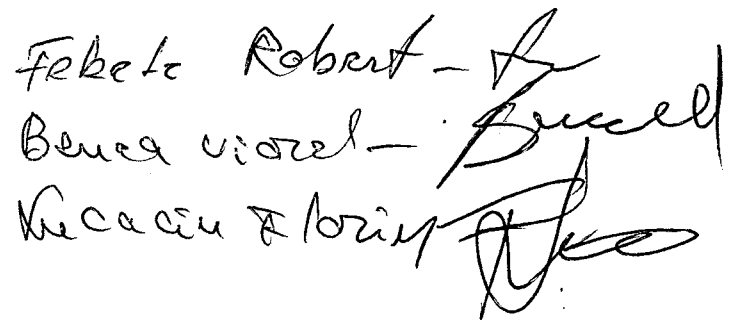 Fekete Robert -
Benea Viorel -
Lucaciu Florin